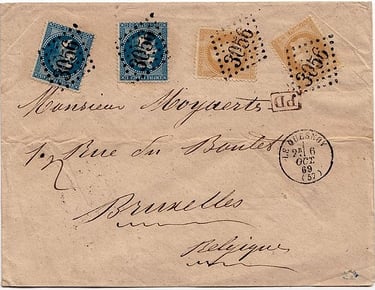 3056 3056 3056 3056
Monsieur Moyaerts
PD
Rue du Boulet
LE QUESNOY
6
OCT
69
(57)
Bruxelles
Belgique